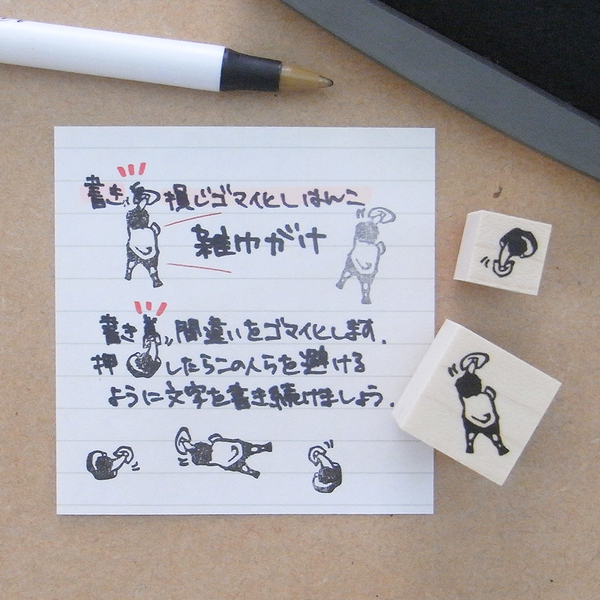 書き損じゴマイヒしはんこ
雑巾がけ
書き間違いをゴマイヒします.
押したらこの人らを避ける
ように文字を書き続けましょう.